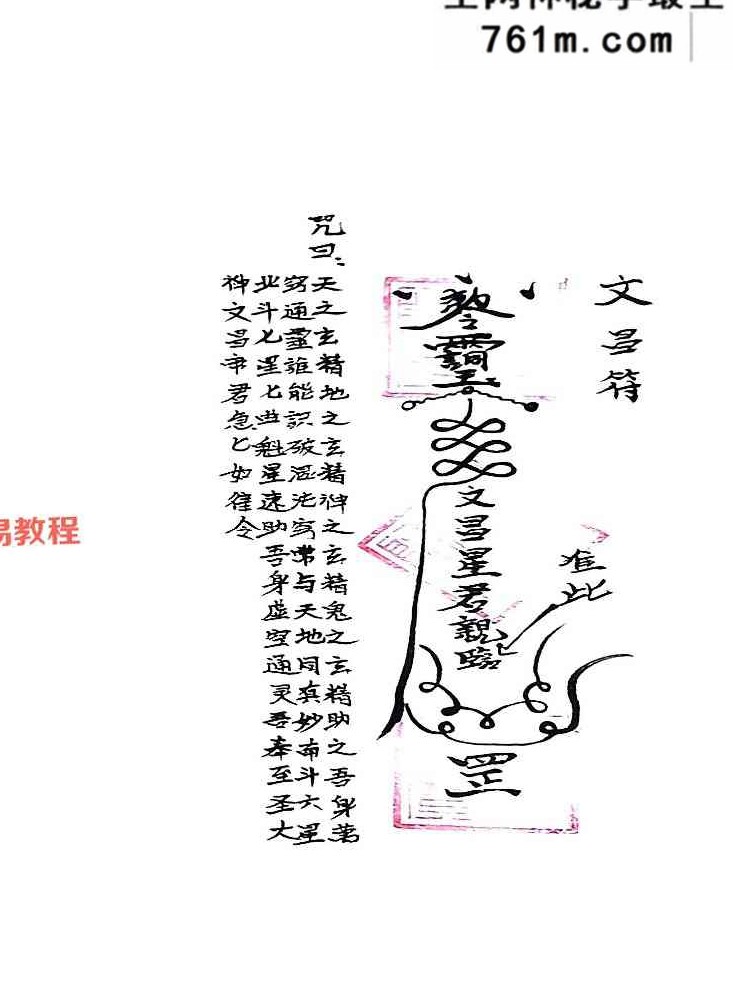 761m.com
文昌符
敕令
文昌星君親臨
准此
罡
咒曰:
天之玄精地之玄精神之玄精鬼之玄精助之吾身萬
窍通靈誰能識破混沌窍常与天地同真妙南斗六星
北斗七星七曲魁星速助吾身虚空通灵吾奉至圣大
神文昌帝君急匕如律令
易教程